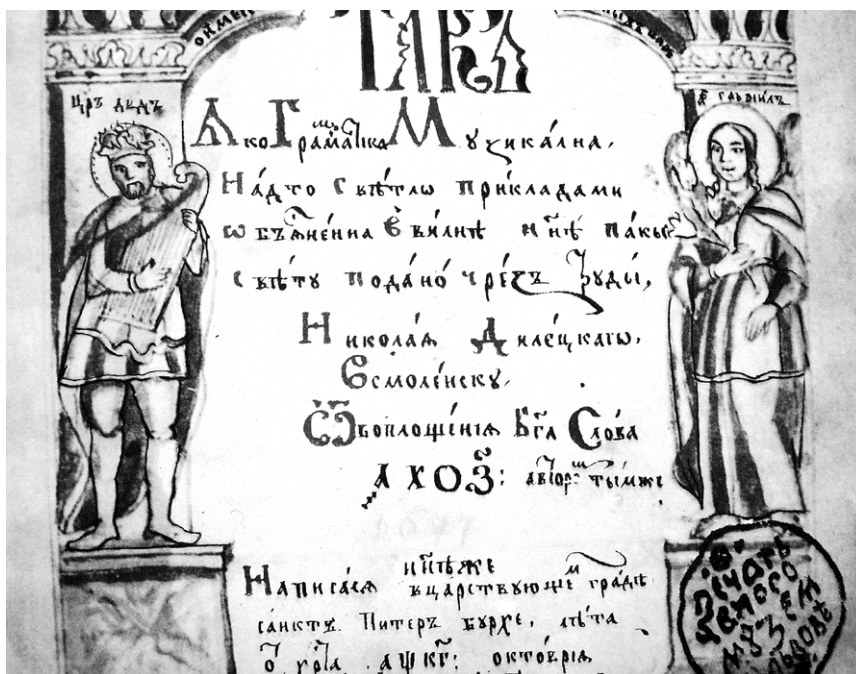 ЦРЪ ДВДЪ
ГАВРІИЛЪ
Ꙗко Граматіка Мусикална,
На́дто свѣтлѡ прикладами
ѡбъѧсненна Ѐ вилнѣ нн҃ѣ па́кы
свѣту пода́но чре́зъ труды̀,
Никола́ѧ Диле́цкагѡ,
Всмоле́нску,
Ѿ воплоще́нїѧ Бг҃а Сло́ва
АХОЗ҃: а҆вто́р: ты́мже
1677
Написа́сѧ нн҃ѣже
вцарствующе гра́дѣ
са́нктъ Питеръ бурхе, лѣ́та
ѿ хр҃та .аѱкг҃: окто́врїа
ПЕЧАТЬ
МУЗЕМ
ЛЬВОВѢ